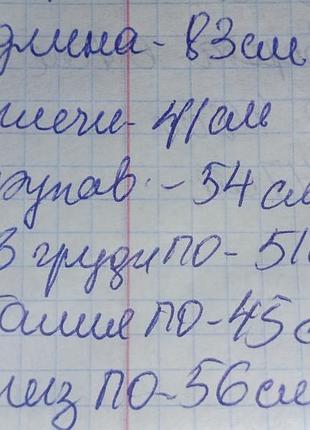 длина - 83см
плечи - 41см
рукав - 54 см
В груди ПО - 51
Талия ПО - 45 с
низ ПО - 56 см